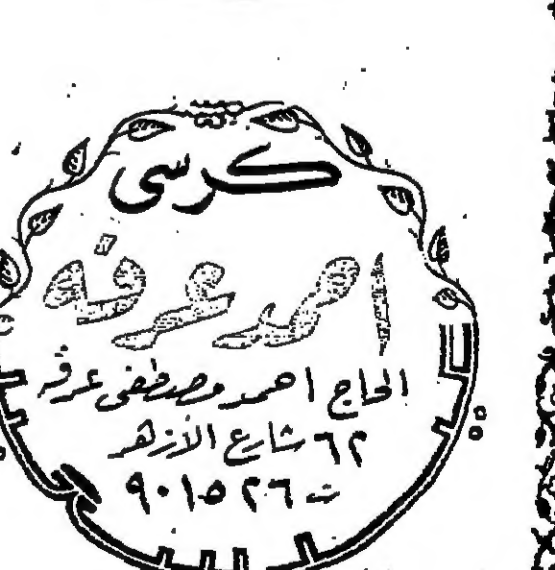 كرسى
احمد عرفه
الحاج احمد مصطفى عرفه
٦٢ شارع الازهر
ت ٩٠١٥٢٦